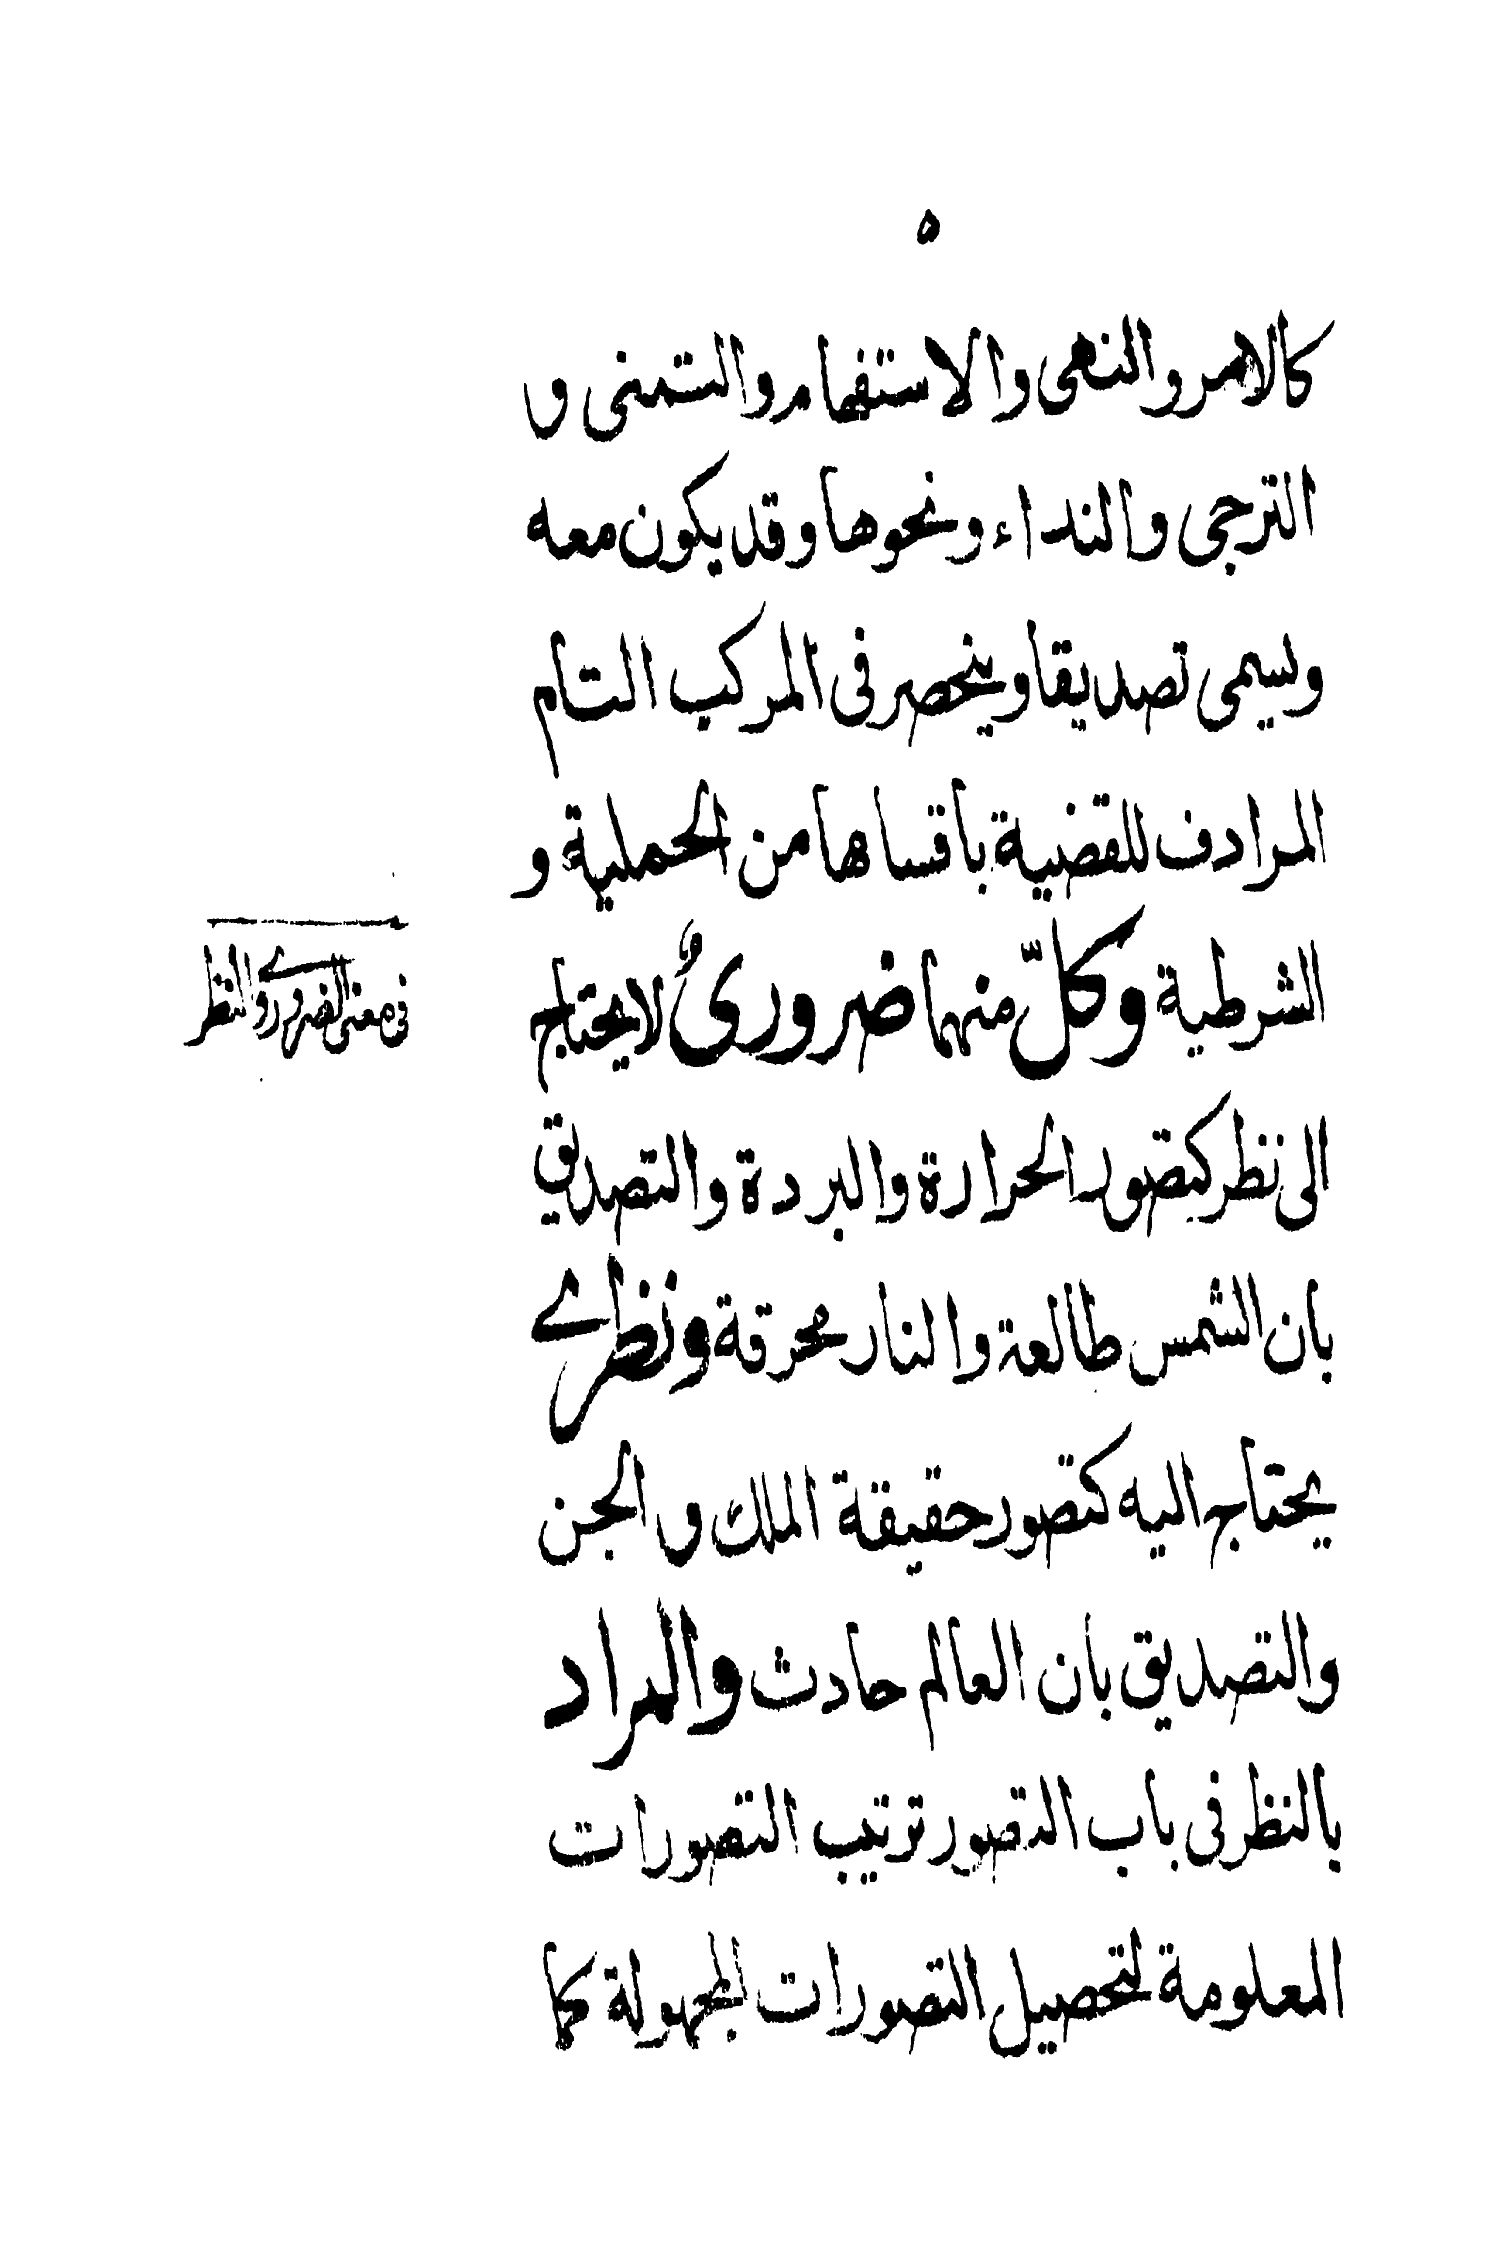 ٥
كالامر والنهى والاستفهام والتمنى و
الترجى والنداء ونحوها وقد يكون معه
ويسمى تصديقا وينحصر فى المركب التام
المرادف للقضية باقساها من الحملية و
الشرطية وكلّ منهما ضرورىٌ لا يحتاج
فى معنى الضرورے والنظر
الى نظر كتصور الحرارة والبردة والتصديق
بان الشمس طالعة والنار محرقة ونظرے
يحتاج اليه كتصور حقيقة الملك والجن
والتصديق بان العالم حادث والمراد
بالنظر فى باب التصور ترتيب التصورات
المعلومة لتحصيل التصورات المجهولة كما